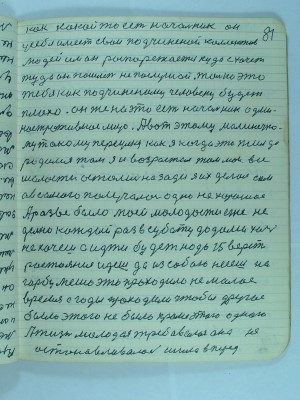 81
как какой то есть начальник он
имеет свой подчиненой коллектив
людей и он распоряжается куда схочет
туда он пошлет не послушай, только это
тебя как подчиненаму человеку будет
плохо. он же на то есть начальник одми-
нистротивное лицо. А вот этому маленько-
му такому перецику как я когда то жил до
родился там я и возрастал там мои все
шалости остались назади я их делал сам
а самого получалось одно не хорошое
А разве было моей молодости еще не
дано каждый раз в суботу додому хоч
не хочеш а идти будет надо 15 верст
растояния идеш да из собою несеш на
горбу мешо это проходило не малое
время а годи проходили чтобы другое
было этого не было кроме этого одного
А жизнь молодая требавала она не
останавливалась шла вперед